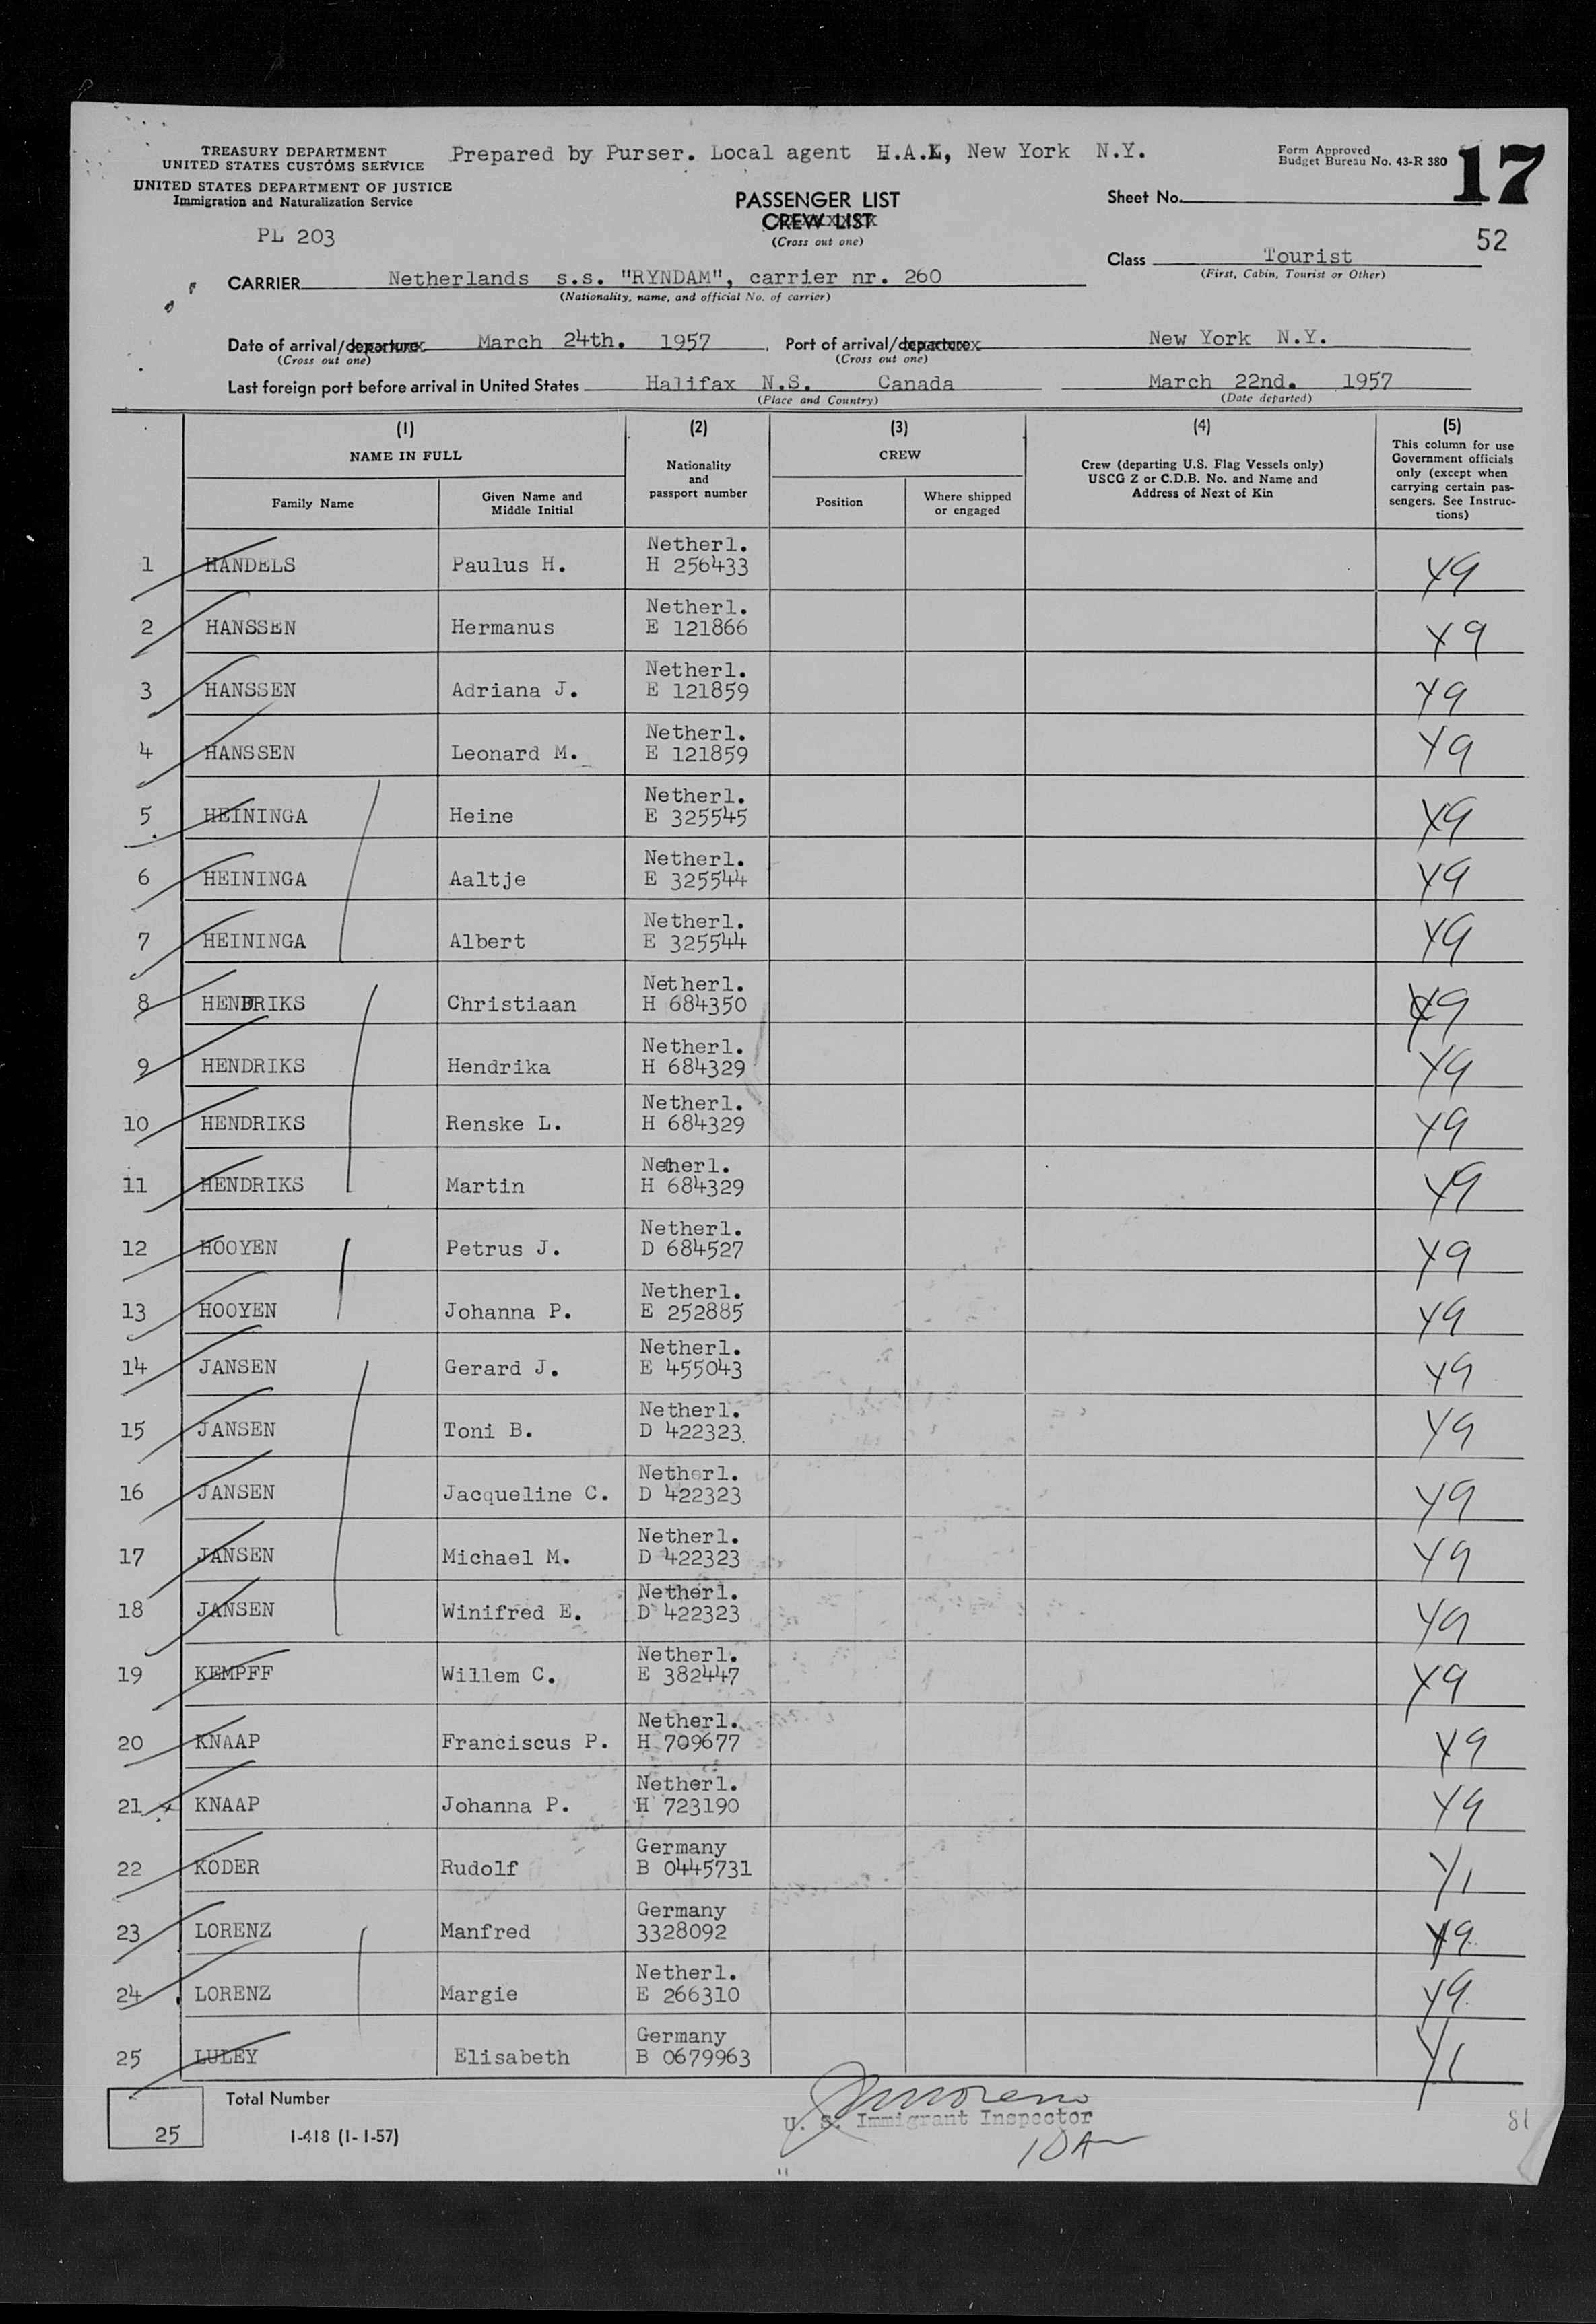 TREASURY DEPARTMENT
UNITED STATES CUSTOMS SERVICE
UNITED STATES DEPARTMENT OF JUSTICE
Immigration and Naturalization Service
Prepared by Purser. Local agent H.A.L, New York N.Y.
Form Approved
Budget Bureau No. 43-R 380
17
PASSENGER LIST
CREW LIST
(Cross out one)
Sheet No.
52
PL 203
Class Tourist
(First, Cabin, Tourist or Other)
CARRIER Netherlands s.s. "RYNDAM", carrier nr. 260
(Nationality, name, and official No. of carrier)
Date of arrival/departure March 24th. 1957, Port of arrival/departure New York N.Y.
(Cross out one) (Cross out one)
Last foreign port before arrival in United States Halifax N.S. Canada March 22nd. 1957
(Place and Country) (Date departed)
(1) (2) (3) (4) (5)
NAME IN FULL
Family Name
Given Name and
Middle Initial
Nationality
and
passport number
CREW
Position
Where shipped
or engaged
Crew (departing U.S. Flag Vessels only)
USCG Z or C.D.B. No. and Name and
Address of Next of Kin
This column for use
Government officials
only (except when
carrying certain pas-
sengers. See Instruc-
tions)
Netherl.
1 HANDELS Paulus H. H 256433 Y9
Netherl.
2 HANSSEN Hermanus E 121866 Y9
Netherl.
3 HANSSEN Adriana J. E 121859 Y9
Netherl.
4 HANSSEN Leonard M. E 121859 Y9
Netherl.
5 HEININGA Heine E 325545 Y9
Netherl.
6 HEININGA Aaltje E 325544 Y9
Netherl.
7 HEININGA Albert E 325544 Y9
Netherl.
8 HENDRIKS Christiaan H 684350 Y9
Netherl.
9 HENDRIKS Hendrika H 684329 Y9
Netherl.
10 HENDRIKS Renske L. H 684329 Y9
Netherl.
11 HENDRIKS Martin H 684329 Y9
Netherl.
12 HOOYEN Petrus J. D 684527 Y9
Netherl.
13 HOOYEN Johanna P. E 252885 Y9
Netherl.
14 JANSEN Gerard J. E 455043 Y9
Netherl.
15 JANSEN Toni B. D 422323 Y9
Netherl.
16 JANSEN Jacqueline C. D 422323 Y9
Netherl.
17 JANSEN Michael M. D 422323 Y9
Netherl.
18 JANSEN Winifred E. D 422323 Y9
Netherl.
19 KEMPFF Willem C. E 382447 Y9
Netherl.
20 KNAAP Franciscus P. H 709677 Y9
Netherl.
21 KNAAP Johanna P. H 723190 Y9
Germany
22 KODER Rudolf B 0445731 Y1
Germany
23 LORENZ Manfred 3328092 Y9
Netherl.
24 LORENZ Margie E 266310 Y9
Germany
25 LULEY Elisabeth B 0679963 Y1
Total Number
25
I-418 (1-1-57)
U. S. Immigrant Inspector
81